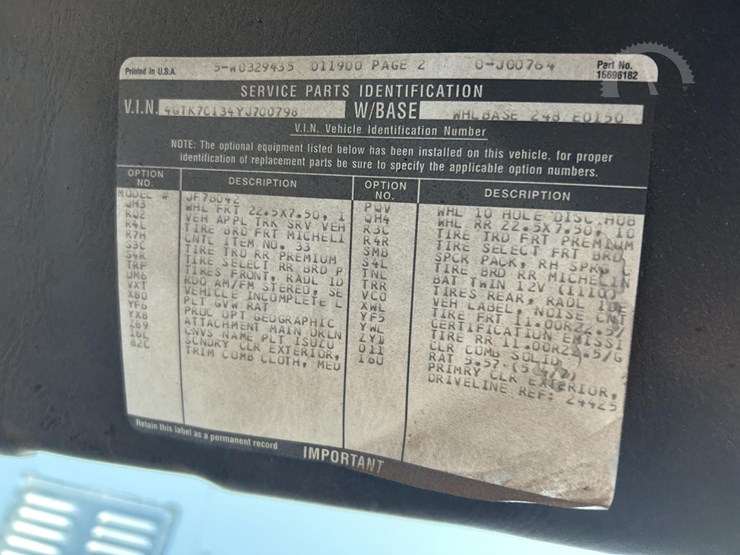 Printed in U.S.A. 5-W0329435 011900 PAGE 2 0-J00764 Part No. 15696182
SERVICE PARTS IDENTIFICATION
V.I.N. 4GTK7C134YJ700798 W/BASE WHLBASE 248 E0150
V.I.N. Vehicle Identification Number
NOTE: The optional equipment listed below has been installed on this vehicle, for proper
identification of replacement parts be sure to specify the applicable option numbers.
OPTION NO. DESCRIPTION
MODEL # JF7B042
QH3 WHL FRT 22.5X7.50, 1
RQ2 VEH APPL TRK SRV VEH
R4L TIRE BRD FRT MICHELI
R7M CNTL ITEM NO. 33
S3C TIRE TRD RR PREMIUM
S4R TIRE SELECT RR BRD P
TRF TIRES FRONT, RADL ID
UM6 RDO AM/FM STEREO, SE
VXT VEHICLE INCOMPLETE L
XBO PLT GVW RAT
YF6 PROC OPT GEOGRAPHIC
YX8 ATTACHMENT MAIN ORLN
CNVS NAME PLT ISUZU
SCNDRY CLR EXTERIOR,
82C TRIM COMB CLOTH, MED
OPTION NO. DESCRIPTION
PQV WHL 10 HOLE DISC.HUB
QH4 WHL RR 22.5X7.50, 10
R3C TIRE TRD FRT PREMIUM
R4R TIRE SELECT FRT BRD
SMB SPCR PACK, RH SPRG C
S4L TIRE BRD RR MICHELIN
TNL BAT TWIN 12V (1110)
TRR TIRES REAR, RADL IDE
VCO VEH LABEL, NOISE CNT
XWL TIRE FRT 11.00R22.5/
YF5 CERTIFICATION EMISSI
YWL TIRE RR 11.00R22.5/G
ZY1 CLR COMB SOLID
011 RAT
16U PRIMRY CLR EXTERIOR,
DRIVELINE REF: 24425
Retain this label as a permanent record
IMPORTANT